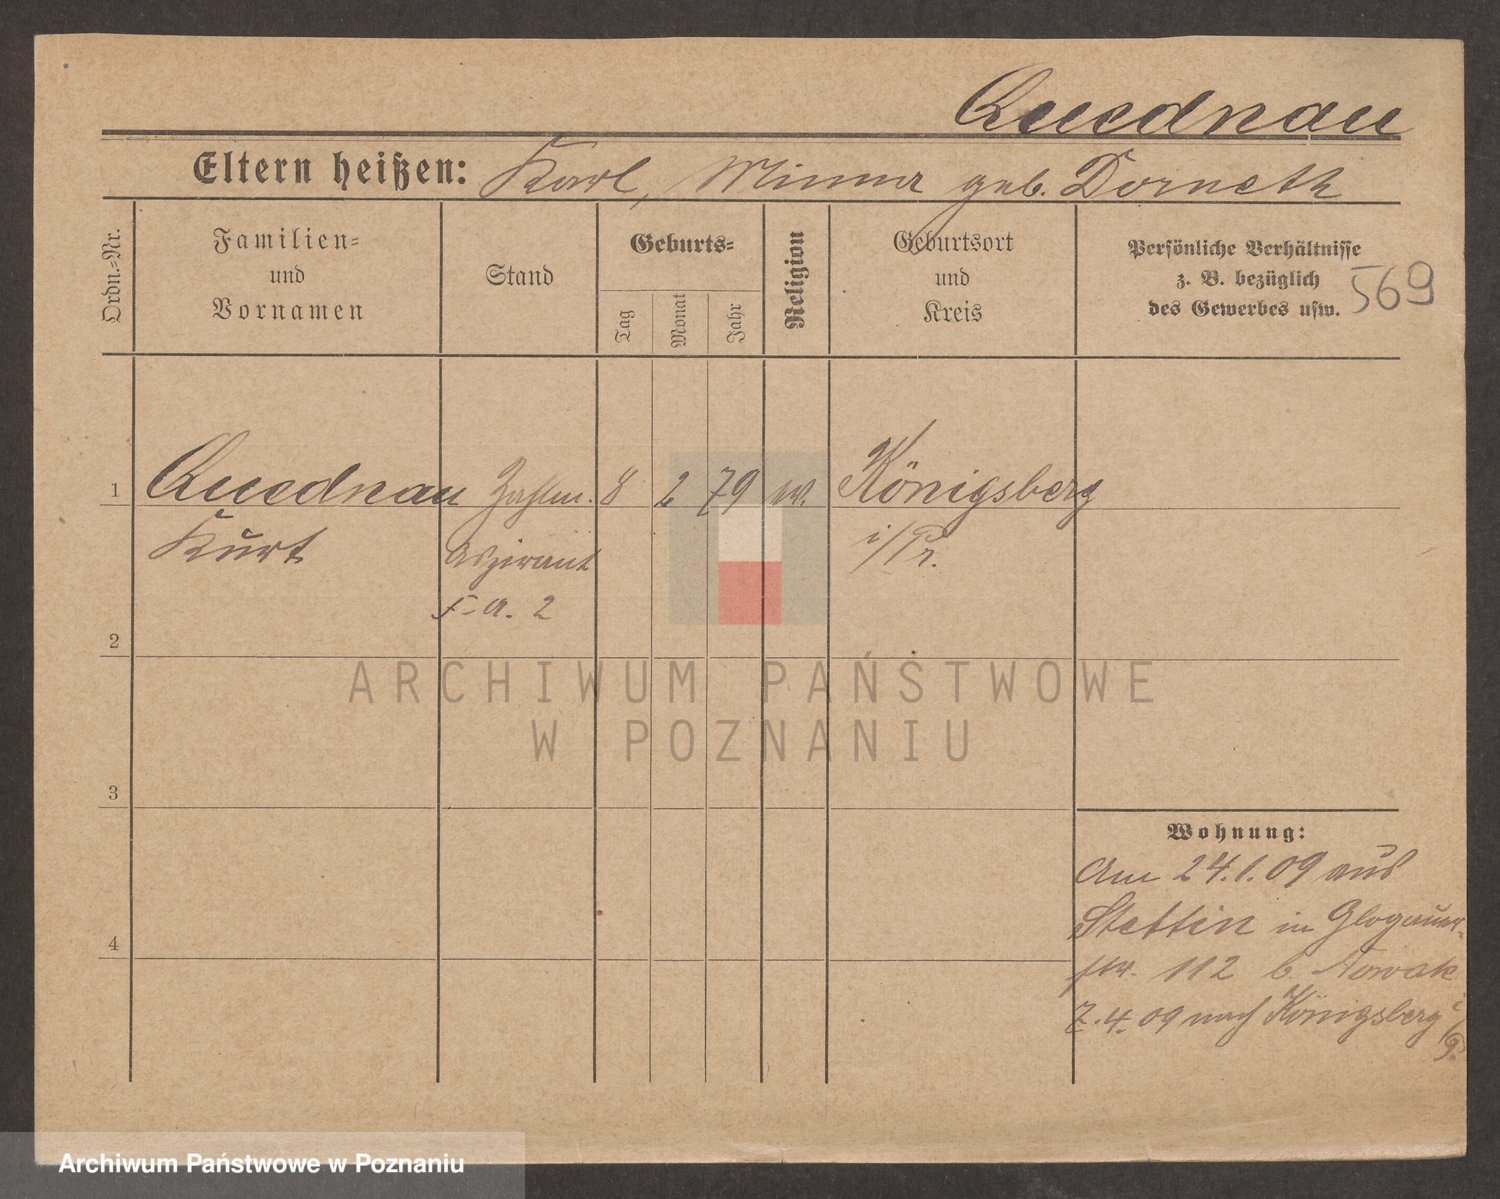 Quednau
Eltern heißen: Karl, Minna geb. Dorneth
Ordn.-Nr.
Familien-
und
Vornamen
Stand
Geburts-
Tag
Monat
Jahr
Religion
Geburtsort
und
Kreis
Persönliche Verhältnisse
z. B. bezüglich
des Gewerbes usw.
569
1 Quednau Zahlm. 8 2 79 ev. Königsberg
Kurt Aspirant i/Pr.
F-A. 2
2
3
4
Wohnung:
Am 24.1.09 aus
Stettin in Glogauer-
str. 112 b. Nowak
7.4.09 nach Königsberg i/P.
ARCHIWUM PAŃSTWOWE
W POZNANIU
Archiwum Państwowe w Poznaniu